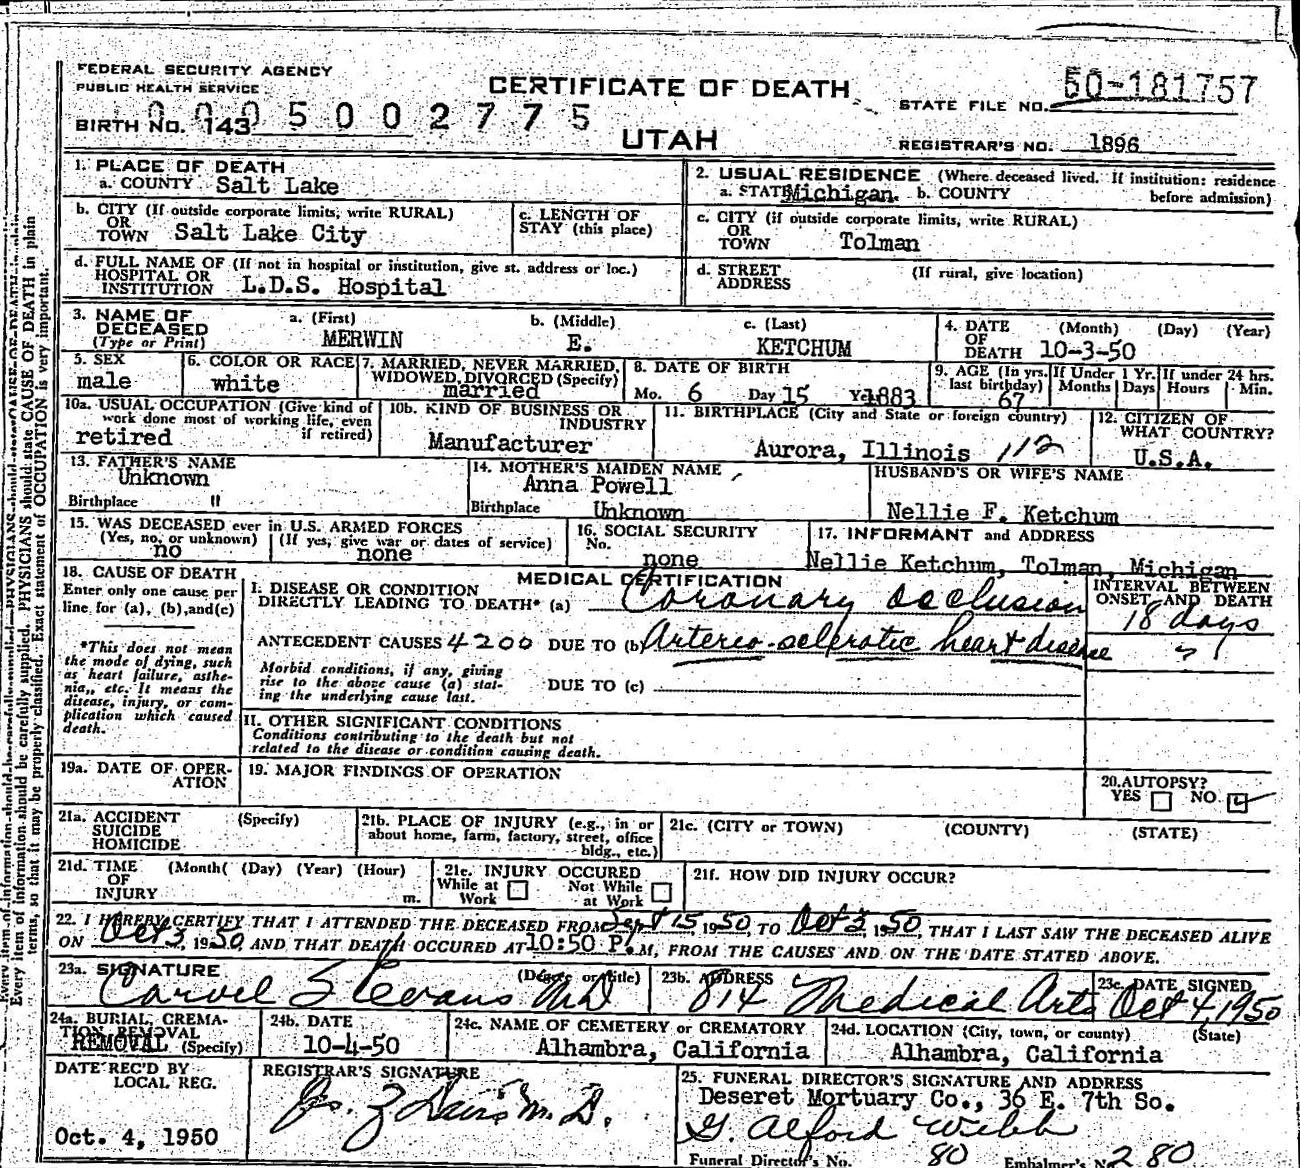 FEDERAL SECURITY AGENCY
PUBLIC HEALTH SERVICE
CERTIFICATE OF DEATH
STATE FILE NO. 50-181757
0005002775
BIRTH NO. 143
UTAH
REGISTRAR'S NO. 1896
1. PLACE OF DEATH
a. COUNTY Salt Lake
2. USUAL RESIDENCE (Where deceased lived. If institution: residence before admission)
a. STATE Michigan. b. COUNTY
b. CITY (If outside corporate limits, write RURAL)
OR
TOWN Salt Lake City
c. LENGTH OF
STAY (this place)
c. CITY (if outside corporate limits, write RURAL)
OR
TOWN Tolman
d. FULL NAME OF (If not in hospital or institution, give st. address or loc.)
HOSPITAL OR
INSTITUTION L.D.S. Hospital
d. STREET
ADDRESS
(If rural, give location)
3. NAME OF
DECEASED
(Type or Print)
a. (First)
MERWIN
b. (Middle)
E.
c. (Last)
KETCHUM
4. DATE (Month) (Day) (Year)
OF
DEATH 10-3-50
5. SEX
male
6. COLOR OR RACE
white
7. MARRIED, NEVER MARRIED,
WIDOWED, DIVORCED (Specify)
married
8. DATE OF BIRTH
Mo. 6 Day 15 Yr. 1883
9. AGE (In yrs. last birthday)
67
If Under 1 Yr.
Months Days
If under 24 hrs.
Hours Min.
10a. USUAL OCCUPATION (Give kind of
work done most of working life, even
if retired)
retired
10b. KIND OF BUSINESS OR
INDUSTRY
Manufacturer
11. BIRTHPLACE (City and State or foreign country)
Aurora, Illinois 112
12. CITIZEN OF
WHAT COUNTRY?
U.S.A.
13. FATHER'S NAME
Unknown
Birthplace "
14. MOTHER'S MAIDEN NAME
Anna Powell
Birthplace Unknown
HUSBAND'S OR WIFE'S NAME
Nellie F. Ketchum
15. WAS DECEASED ever in U.S. ARMED FORCES
(Yes, no, or unknown) (If yes, give war or dates of service)
no none
16. SOCIAL SECURITY
No.
none
17. INFORMANT and ADDRESS
Nellie Ketchum, Tolman, Michigan
18. CAUSE OF DEATH
Enter only one cause per
line for (a), (b), and (c)
*This does not mean
the mode of dying, such
as heart failure, asthe-
nia, etc. It means the
disease, injury, or com-
plication which caused
death.
MEDICAL CERTIFICATION
I. DISEASE OR CONDITION
DIRECTLY LEADING TO DEATH* (a) Coronary occlusion
INTERVAL BETWEEN
ONSET AND DEATH
18 days
ANTECEDENT CAUSES 4200 DUE TO (b) Arterio-sclerotic heart disease
?
Morbid conditions, if any, giving
rise to the above cause (a) stat-
ing the underlying cause last.
DUE TO (c)
II. OTHER SIGNIFICANT CONDITIONS
Conditions contributing to the death but not
related to the disease or condition causing death.
19a. DATE OF OPER-
ATION
19. MAJOR FINDINGS OF OPERATION
20. AUTOPSY?
YES NO
21a. ACCIDENT (Specify)
SUICIDE
HOMICIDE
21b. PLACE OF INJURY (e.g., in or
about home, farm, factory, street, office
bldg., etc.)
21c. (CITY or TOWN) (COUNTY) (STATE)
21d. TIME (Month) (Day) (Year) (Hour)
OF
INJURY m.
21e. INJURY OCCURED
While at Work Not While at Work
21f. HOW DID INJURY OCCUR?
22. I HEREBY CERTIFY THAT I ATTENDED THE DECEASED FROM Sept 15, 1950, TO Oct 3, 1950, THAT I LAST SAW THE DECEASED ALIVE
ON Oct 3, 1950 AND THAT DEATH OCCURED AT 10:50 P. M, FROM THE CAUSES AND ON THE DATE STATED ABOVE.
23a. SIGNATURE (Degree or title)
Carvel S Evans MD
23b. ADDRESS
814 Medical Arts
23c. DATE SIGNED
Oct 4 1950
24a. BURIAL, CREMA-
TION, REMOVAL
REMOVAL (Specify)
24b. DATE
10-4-50
24c. NAME OF CEMETERY or CREMATORY
Alhambra, California
24d. LOCATION (City, town, or county) (State)
Alhambra, California
DATE REC'D BY
LOCAL REG.
Oct. 4, 1950
REGISTRAR'S SIGNATURE
Davis M.D.
25. FUNERAL DIRECTOR'S SIGNATURE AND ADDRESS
Deseret Mortuary Co., 36 E. 7th So.
G. Alford Webb
Funeral Director's No. 80 Embalmer's No. 280
Every item of information should be carefully supplied. PHYSICIANS should state CAUSE OF DEATH in plain
terms, so that it may be properly classified. Exact statement of OCCUPATION is very important.